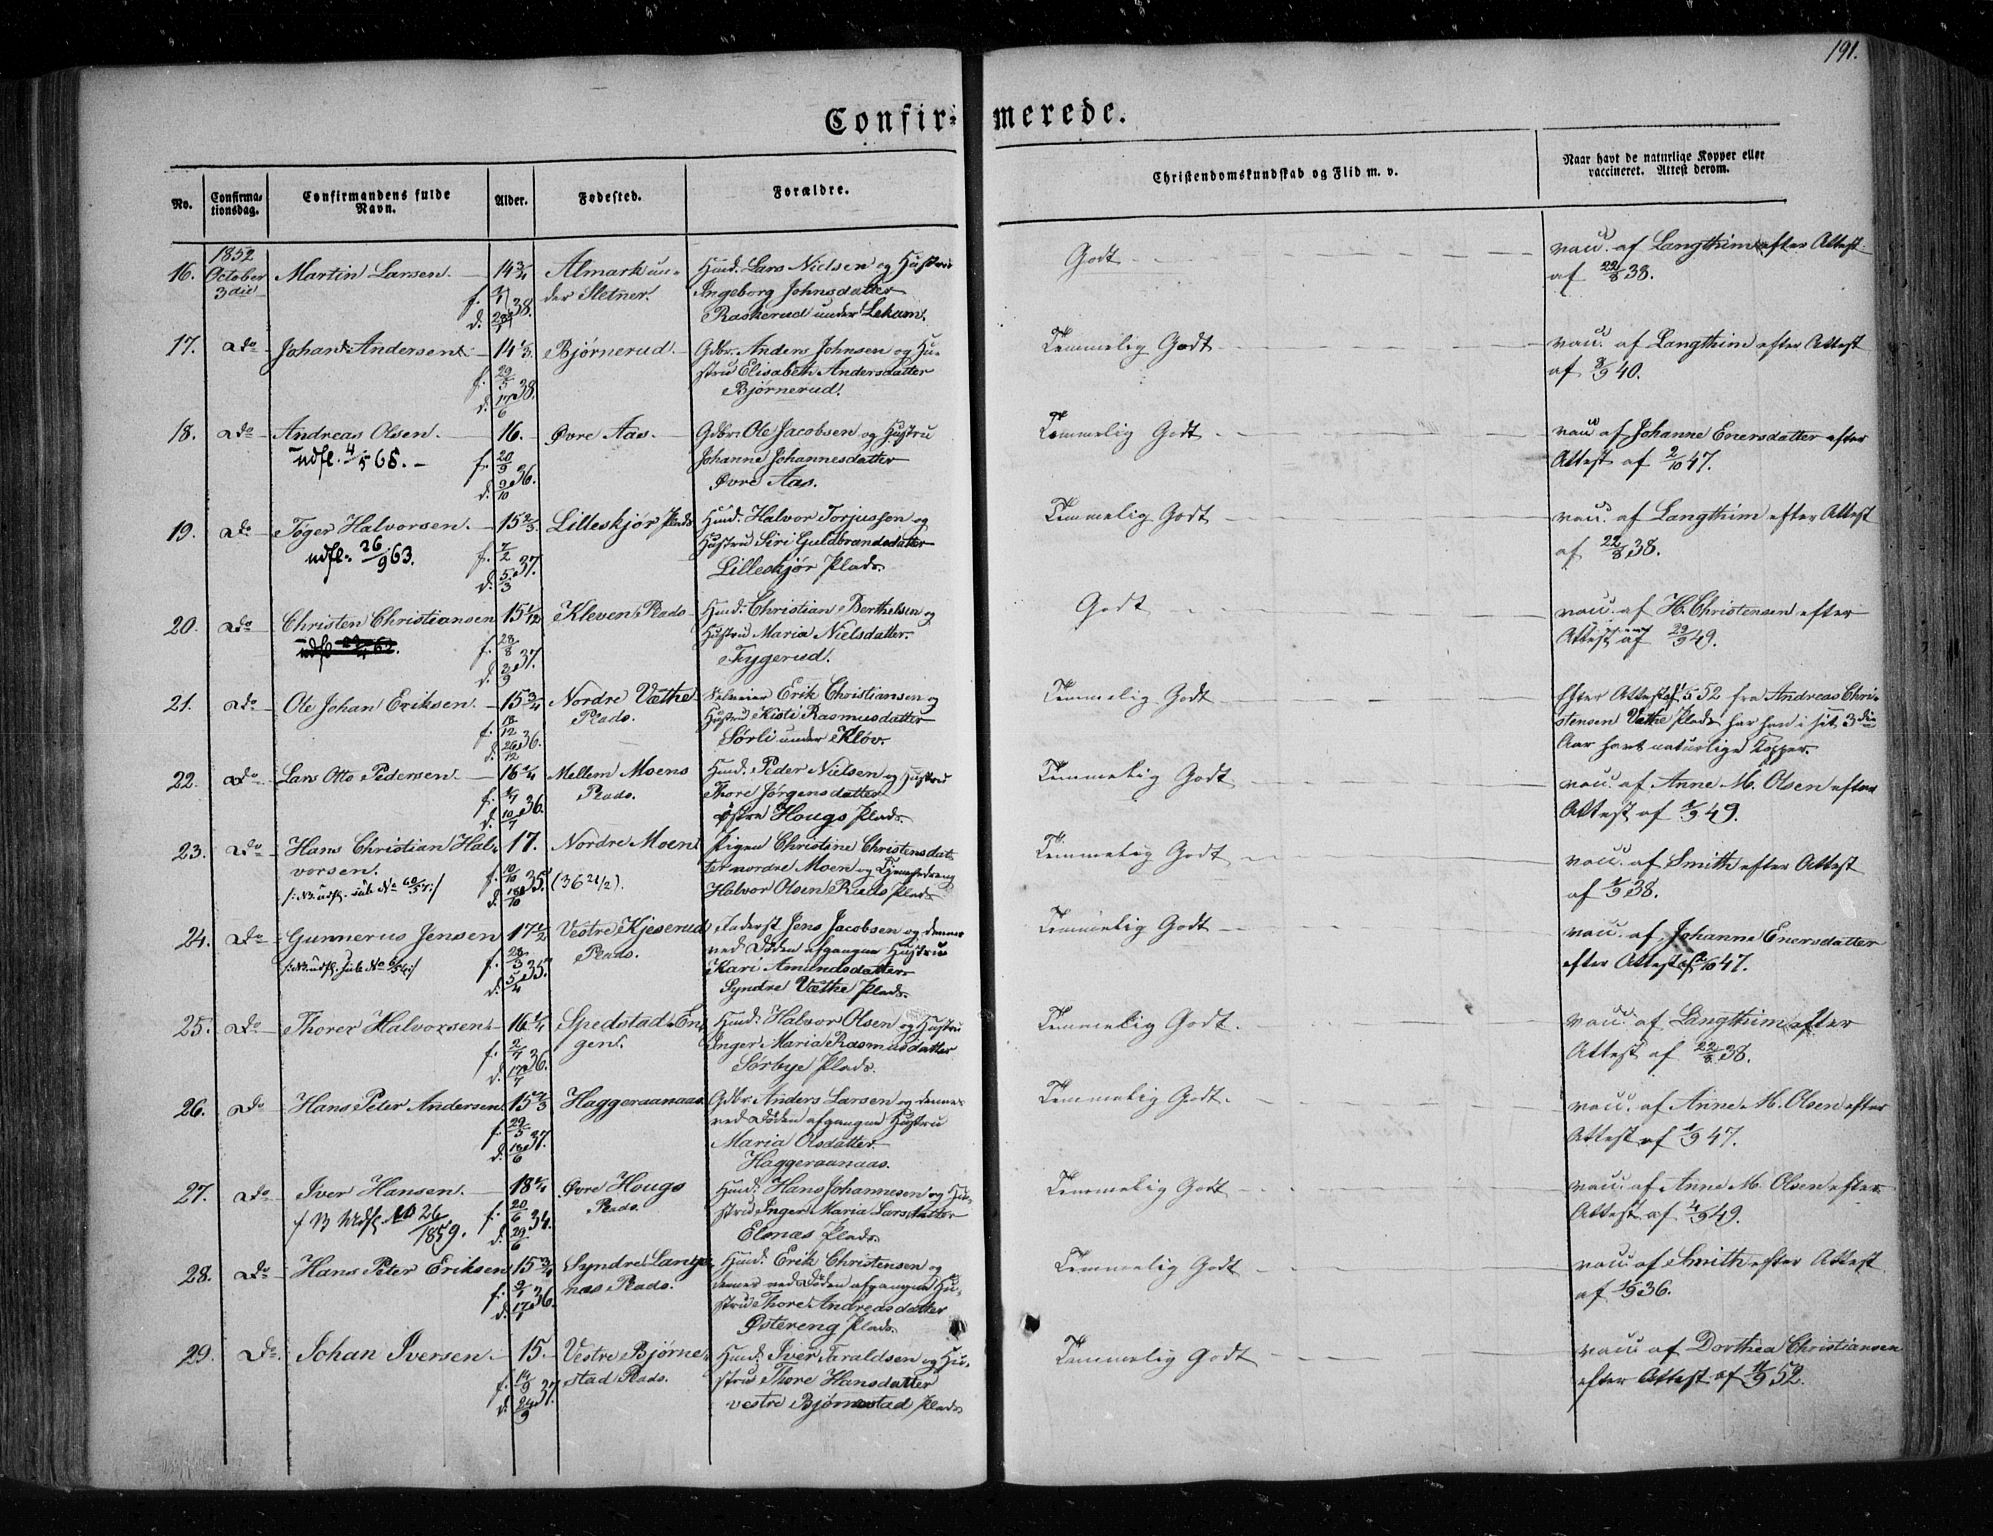 191.
Confir- merede.
No. Confirma-tionsdag. Confirmandens fulde Navn. Alder. Fødested. Forældre. Christendomskundskab og Flid m. v. Naar havt de naturlige Kopper eller vaccineret. Attest derom.
1852
16. October 3die Martin Larsen. 14 3/4 Almark un-der Sletner. Huusmd. Lars Nielsen og Hustru
Ingeborg Johnsdatter
Raskerud under Lekum.
Godt
vacc. af Langthim efter Attest
af 22/8 38.
17. Do Johan Andersen 14 1/3. Bjørnerud. Gdbr. Anders Johnsen og Hu-
f. 29/5 38. stru Elisabeth Andersdatter
d. 17/6 Bjørnerud.
Temmelig Godt
vacc. af Langthim efter Attest
af 3/9 40.
18. Do Andreas Olsen. 16. Øvre Aas. Gdbr. Ole Jacobsen og Hustru
udfl. 4/5 65. f. 20/9 36. Johanne Johannesdatter
d. 9/10 Øvre Aas.
Temmelig Godt
vacc. af Johanne Enersdatter efter
Attest af 2/10 47.
19. Do Tøger Halvorsen. 15 2/3. Lilleskjør Plads Huusmd. Halvor Torjussen og
udfl. 26/9 63. f. 7/2 37. Hustru Siri Guldbrandsdatter
d. 5/3 Lilleskjør Plads.
Temmelig Godt
vacc. af Langthim efter Attest
af 22/8 38.
20. Do Christen Christiansen 15 1/12 Kleven Plads Huusmd. Christian Berthelsen og
f. 28/8 37. Hustru Maria Nielsdatter.
d. 3/9 Fygerud.
Godt
vacc. af H. Christensen efter
Attest af 29/9 49.
21. Do Ole Johan Eriksen. 15 3/4 Nordre Væthe Plads. Selveier Erik Christiansen og
f. 18/12 36. Hustru Kisti Rasmusdatter
d. 26/12 Sørli under Kløv.
Temmelig Godt
Efter Attest af 1/5 52 fra Andreas Chri-
stensen Væthe Plads har han i sit 3die
Aar havt naturlige Kopper.
22. Do Lars Otto Pedersen. 16 1/4 Mellem Moens Plads. Huusmd. Peder Nielsen og Hustru
f. 1/7 36. Thore Jørgensdatter
d. 10/7 østre Hougs Plads.
Temmelig Godt
vacc. af Anne M. Olsen efter
Attest af 1/9 49.
23. Do Hans Christian Hal-vorsen. 17. Nordre Moen Pigen Christine Christensdat-
f. 10/10 35. (36 2 1/2). ter nordre Moen og Tjenestedreng
d. 18/10 Halvor Olsen Rads Plads
Temmelig Godt
vacc. af Smith efter Attest
af 1/9 38.
24. Do Gunnerus Jensen 17 1/2 Vestre Kjeserud Plads. Inderst Jens Jacobsen og dennes
f. 28/3 35. ved Døden afgangne Hustru
d. 5/4 Kari Amundsdatter
Syndre Væthe Plads.
Temmelig Godt
vacc. af Johanne Enersdatter
efter Attest af 2/10 47.
25. Do Thorer Halvorsen 16 1/4 Spedstad En-gen. Huusmd. Halvor Olsen og Hustru
f. 2/7 36. Inger Maria Rasmusdatter
d. 17/7 Sørbye Plads.
Temmelig Godt.
vacc. af Langthim efter
Attest af 22/8 38.
26. Do Hans Peter Andersen 15 1/3 Haggeraanaas. Gdbr. Anders Larsen og dennes
f. 29/5 37. ved Døden afgangne Hustru
d. 18/6 Maria Olsdatter
Haggeraanaas.
Temmelig Godt.
vacc. af Anne M. Olsen efter
Attest af 1/9 47.
27. Do Iver Hansen. 18 1/4 Øvre Hougs Plads. Huusmd. Hans Johannesen og Hu-
NB Udfl. No 26/1859. f. 20/6 34. stru Inger Maria Larsdatter
d. 29/6 Elmas Plads.
Temmelig Godt
vacc. af Anne M. Olsen efter
Attest af 1/9 49.
28. Do Hans Peter Eriksen 15 3/4 Syndre Lange-næs Plads. Huusmd. Erik Christensen og
f. 2/1 36. dennes ved Døden afgangne Hu-
d. 17/1 stru Thore Andreasdatter
Østereng Plads.
Temmelig Godt
vacc. af Smith efter Attest
af 1/9 36.
29. Do. Johan Iversen. 15. Vestre Bjørne-stad Plads. Huusmd. Iver Taraldsen og Hu-
f. 14/9 37. stru Thore Hansdatter
d. 24/9 vestre Bjørnestad Plads
Temmelig Godt
vacc. af Dorthea Christiansen
efter Attest af 11/9 52.